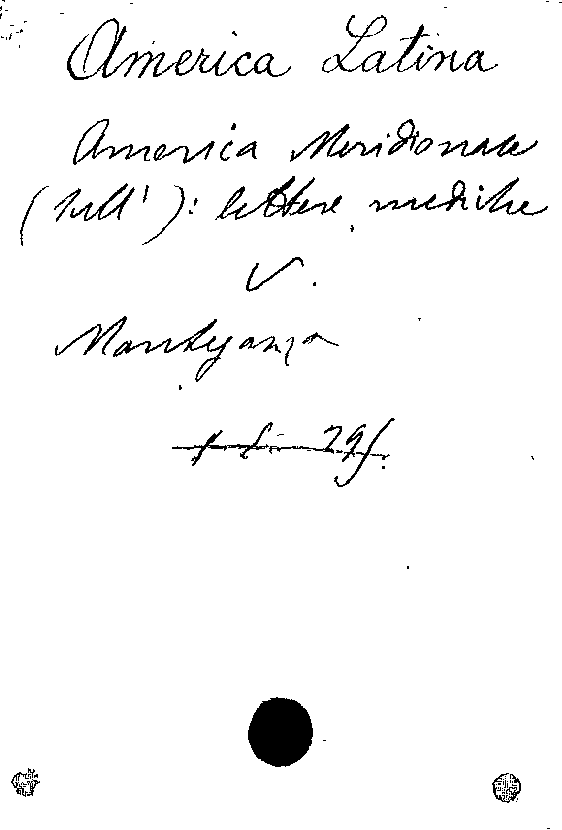 America Latina
America Meridionale
(Sull'): lettere mediche
V.
Mantegazza